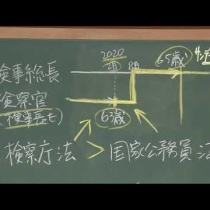 2020
検事総長
65歳
検察官
(検事長)
63歳
検察庁法 > 国家公務員法